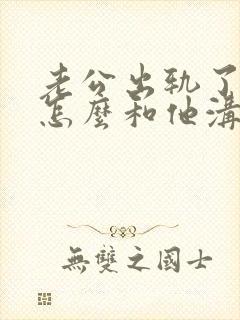 老公出轨了
怎麼和他溝
無雙之國士